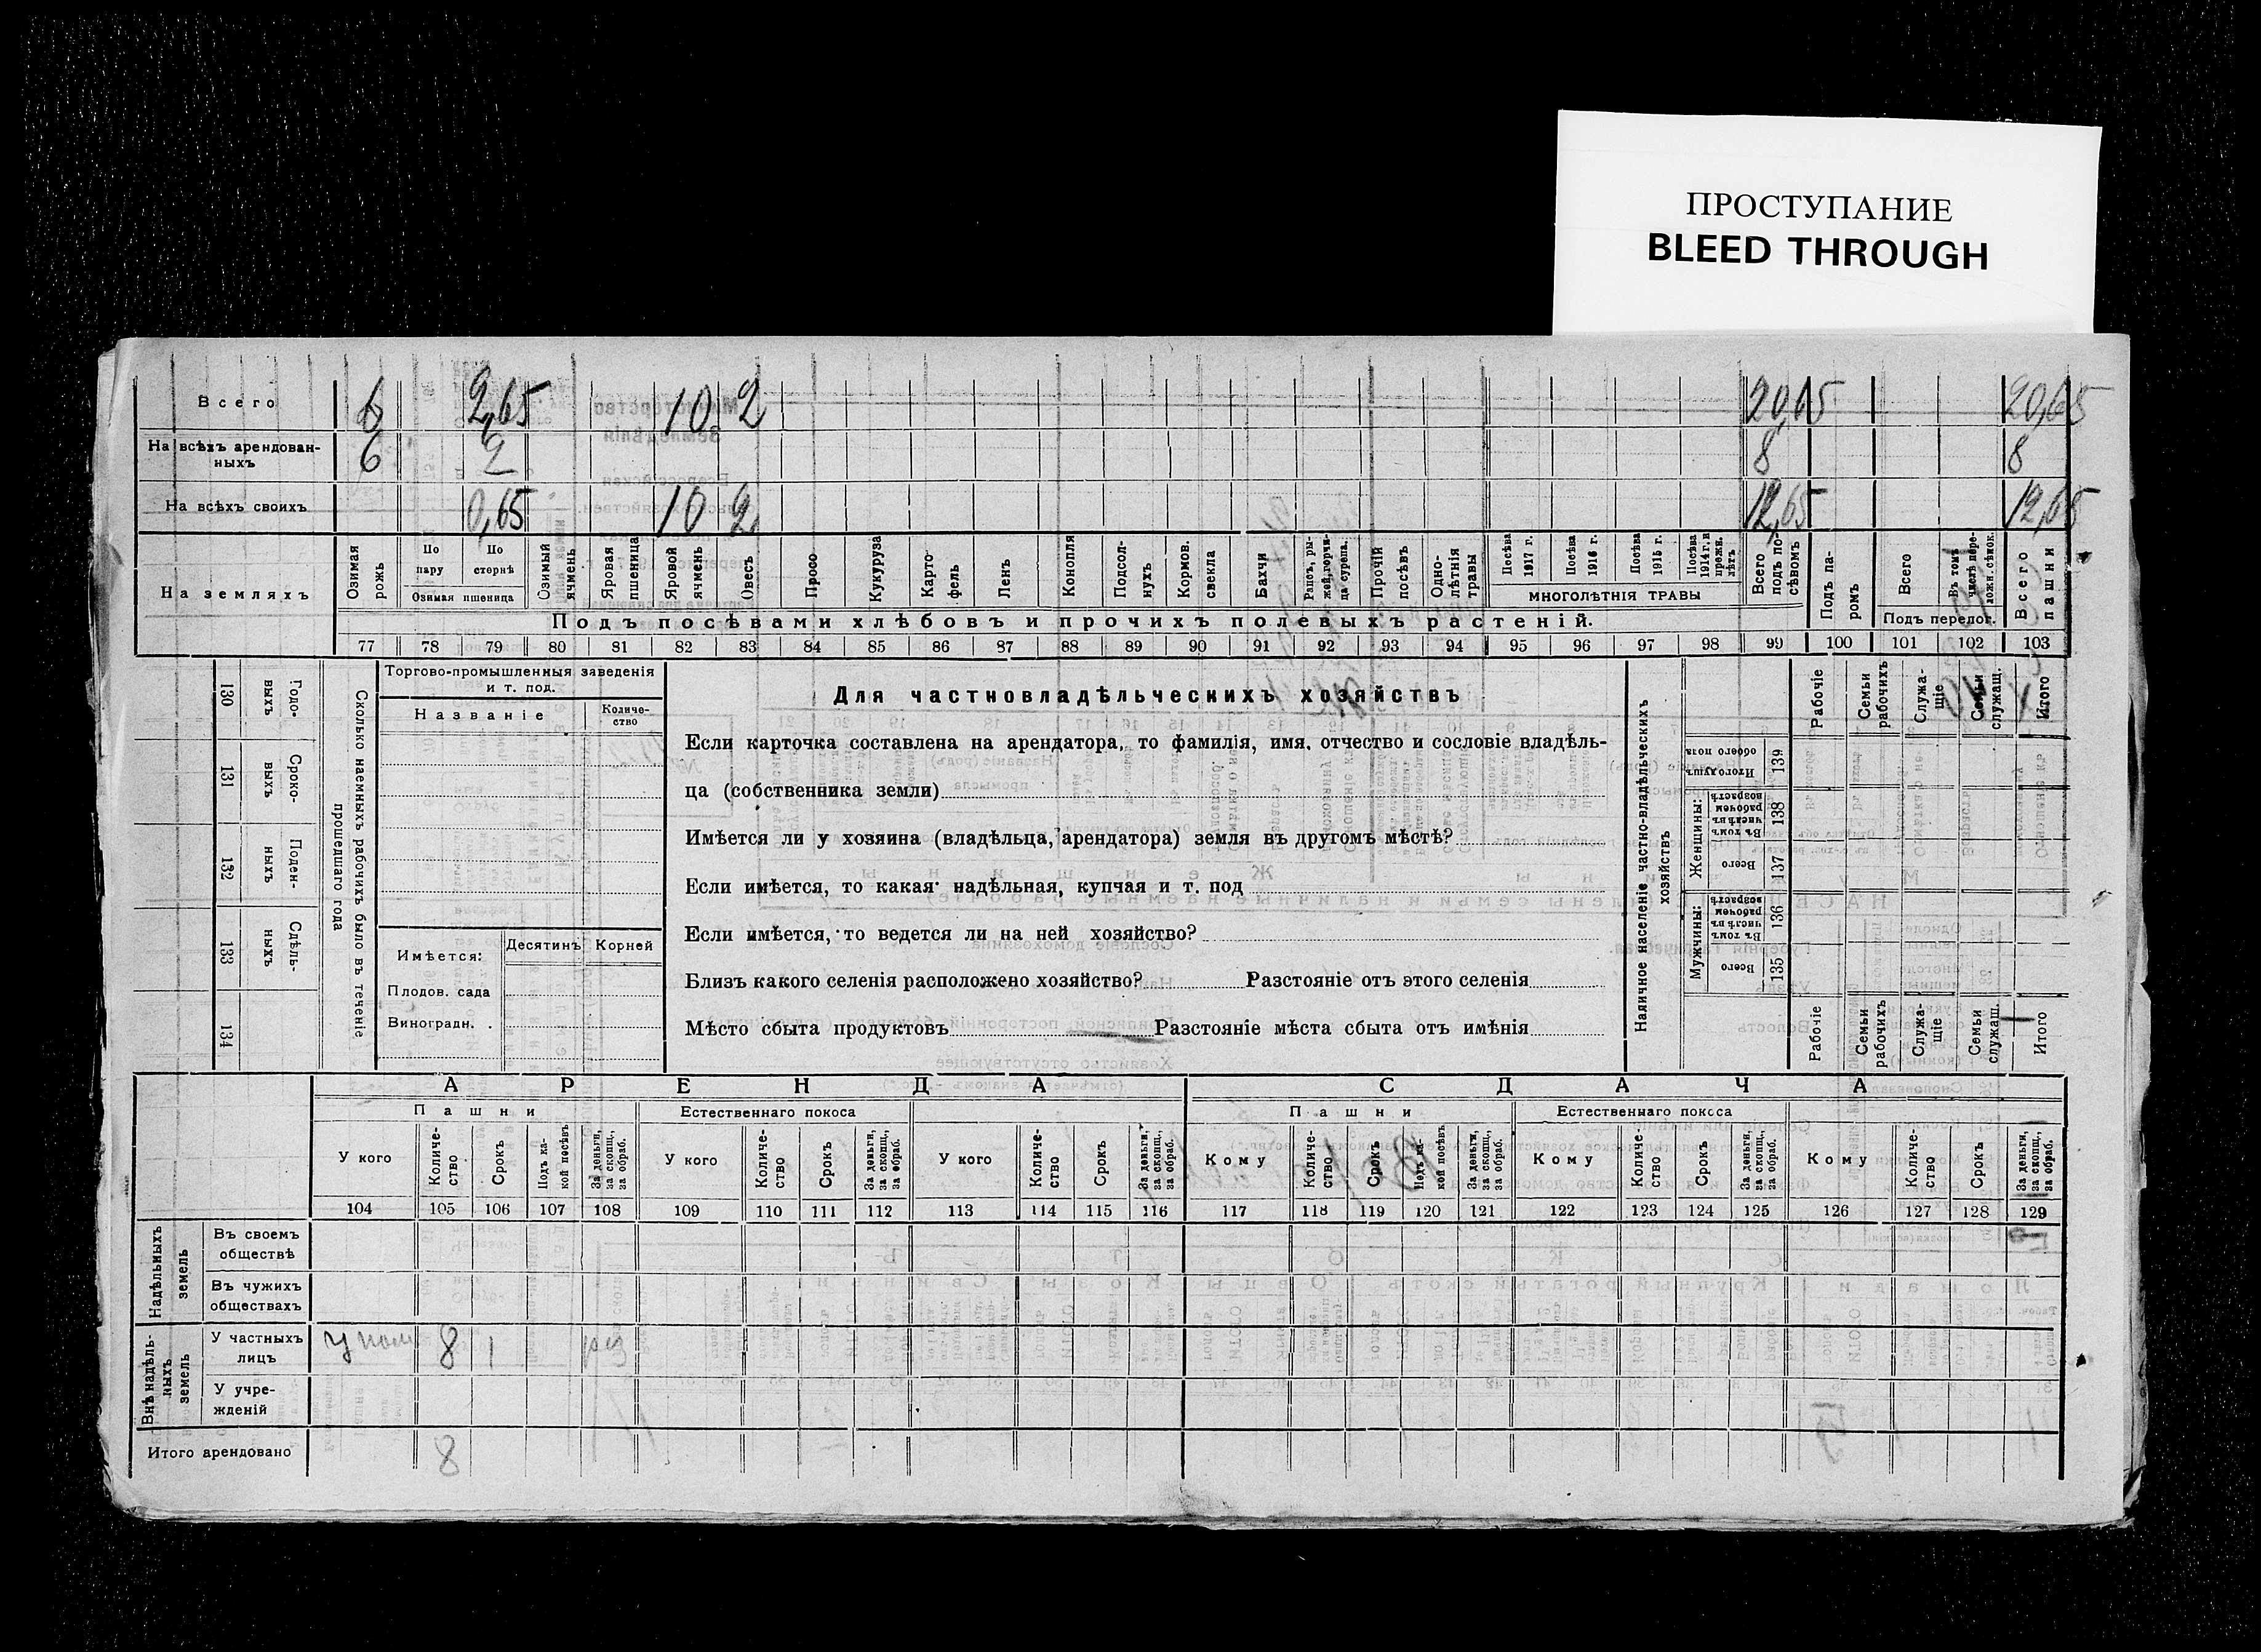 ПРОСТУПАНИЕ
BLEED THROUGH
Всего 6 2,65 10 2 20,65 20,65
На всѣхъ арендован-
ныхъ 6 2 8 8
На всѣхъ своихъ 0,65 10 2 12,65 12,65
На земляхъ
Озимая рожь
По пару
По стернѣ
Озимая пшеница
Озимый ячмень
Яровая пшеница
Яровой ячмень
Овесъ
Просо
Кукуруза
Карто-
фель
Ленъ
Конопля
Подсол-
нухъ
Кормов. свекла
Бахчи
Рапсъ, ры-
жей, горчи-
ца сурепа.
Прочій посѣвъ
Одно-
лѣтнія травы
Посѣва 1917 г.
Посѣва 1916 г.
Посѣва 1915 г.
Посѣва 1914 г. и прежн. лѣтъ
МНОГОЛѢТНІЯ ТРАВЫ
Всего подъ по-
сѣвомъ
Подъ па-
ромъ
Всего
Въ томъ числѣ пере-
ложн. сѣнок.
Подъ перелог.
Всего пашни
Подъ посѣвами хлѣбовъ и прочихъ полевыхъ растеній.
77 78 79 80 81 82 83 84 85 86 87 88 89 90 91 92 93 94 95 96 97 98 99 100 101 102 103
130 Годо-
выхъ
131 Сроко-
выхъ
132 Поден-
ныхъ
133 Сдѣль-
ныхъ
134
Сколько наемныхъ рабочихъ было въ теченіе
прошедшаго года
Торгово-промышленныя заведенія
и т. под.
Названіе
Количе-
ство
Имѣется:
Десятинъ Корней
Плодов. сада
Виноградн.
Для частновладѣльческихъ хозяйствъ
Если карточка составлена на арендатора, то фамилія, имя, отчество и сословіе владѣль-
ца (собственника земли)
Имѣется ли у хозяина (владѣльца, арендатора) земля въ другомъ мѣстѣ?
Если имѣется, то какая: надѣльная, купчая и т. под
Если имѣется, то ведется ли на ней хозяйство?
Близъ какого селенія расположено хозяйство? Разстояніе отъ этого селенія
Мѣсто сбыта продуктовъ Разстояніе мѣста сбыта отъ имѣнія
Наличное населеніе частно-владѣльческихъ
хозяйствъ
Рабочіе
Семьи рабочихъ
Служа-
щіе
Семьи служащ.
Итого
Итого душъ обоего пола 139
Женщины:
Въ томъ числѣ въ рабочемъ возрастѣ 138
Всего 137
Мужчины:
Въ томъ числѣ въ рабочемъ возрастѣ 136
Всего 135
Рабочіе
Семьи рабочихъ
Служа-
щіе
Семьи служащ.
Итого
АРЕНДА СДАЧА
Пашни Естественнаго покоса Пашни Естественнаго покоса
У кого
Количе-
ство
Срокъ
Подъ ка-
кой посѣвъ
За деньги, за скопщ., за обраб.
У кого
Количе-
ство
Срокъ
За деньги, за скопщ., за обраб.
У кого
Количе-
ство
Срокъ
За деньги, за скопщ., за обраб.
Кому
Количе-
ство
Срокъ
Подъ ка-
кой посѣвъ
За деньги, за скопщ., за обраб.
Кому
Количе-
ство
Срокъ
За деньги, за скопщ., за обраб.
Кому
Количе-
ство
Срокъ
За деньги, за скопщ., за обраб.
104 105 106 107 108 109 110 111 112 113 114 115 116 117 118 119 120 121 122 123 124 125 126 127 128 129
Надѣльныхъ земель
Въ своемъ
обществѣ
Въ чужихъ
обществахъ
Внѣ надѣль-
ныхъ земель
У частныхъ
лицъ 8 1
У учре-
жденій
Итого арендовано 8